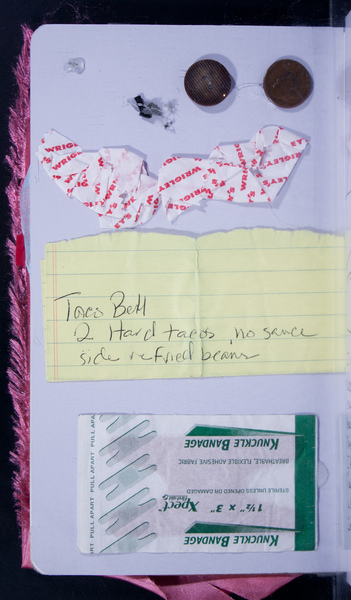 WRIGLEY'S WRIGLEY'S WRIGLEY'S
Taco Bell
2 Hard tacos, no sauce
side refried beans
PULL APART PULL APART PULL APART
KNUCKLE BANDAGE
BREATHABLE, FLEXIBLE ADHESIVE FABRIC
STERILE UNLESS OPENED OR DAMAGED
1½" x 3" Xpect
KNUCKLE BANDAGE